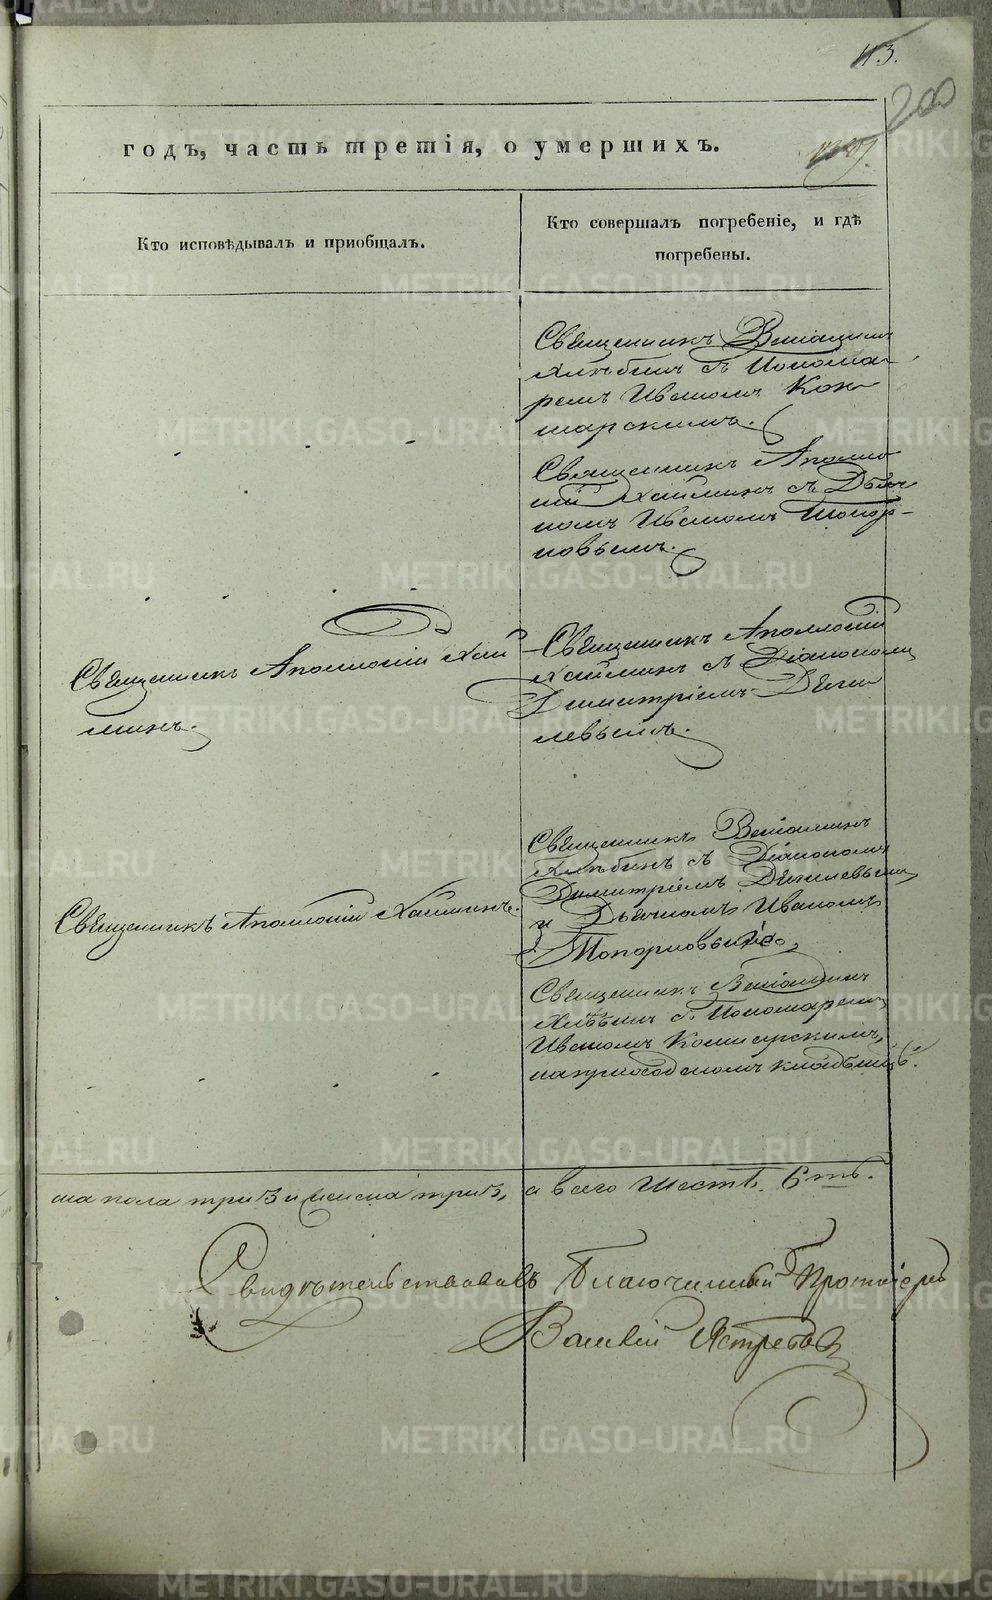 113.
200
годъ, часть третія, о умершихъ.
Кто исповѣдывалъ и приобщалъ.
Кто совершалъ погребеніе, и гдѣ
погребены.
Священникъ Веніаминъ
Хлѣбинъ съ Понома-
ремъ Иваномъ Ком-
марскимъ.
Священникъ Аполло-
ній Хаминъ съ Дьяч-
комъ Иваномъ Топор-
ковымъ.
Священникъ Аполлоній Хай
минъ.
Священникъ Аполлоній
Хайминъ съ Діакономъ
Димитріемъ
Священникъ Аполлоній Хайминъ.
Священникъ Веніаминъ
Хлѣбинъ съ Діакономъ
Димитріемъ
и Дьячкомъ Иваномъ
Топорковымъ
Священникъ Веніаминъ
Хлѣбинъ съ Пономаремъ
Иваномъ
на приходскомъ кладбищѣ.
ска пола три 3 и женска три 3, а всего шесть 6ть.
Свидѣтельствовалъ Благочинный Протоіерей
Василій Ястребовъ
METRIKI.GASO-URAL.RU